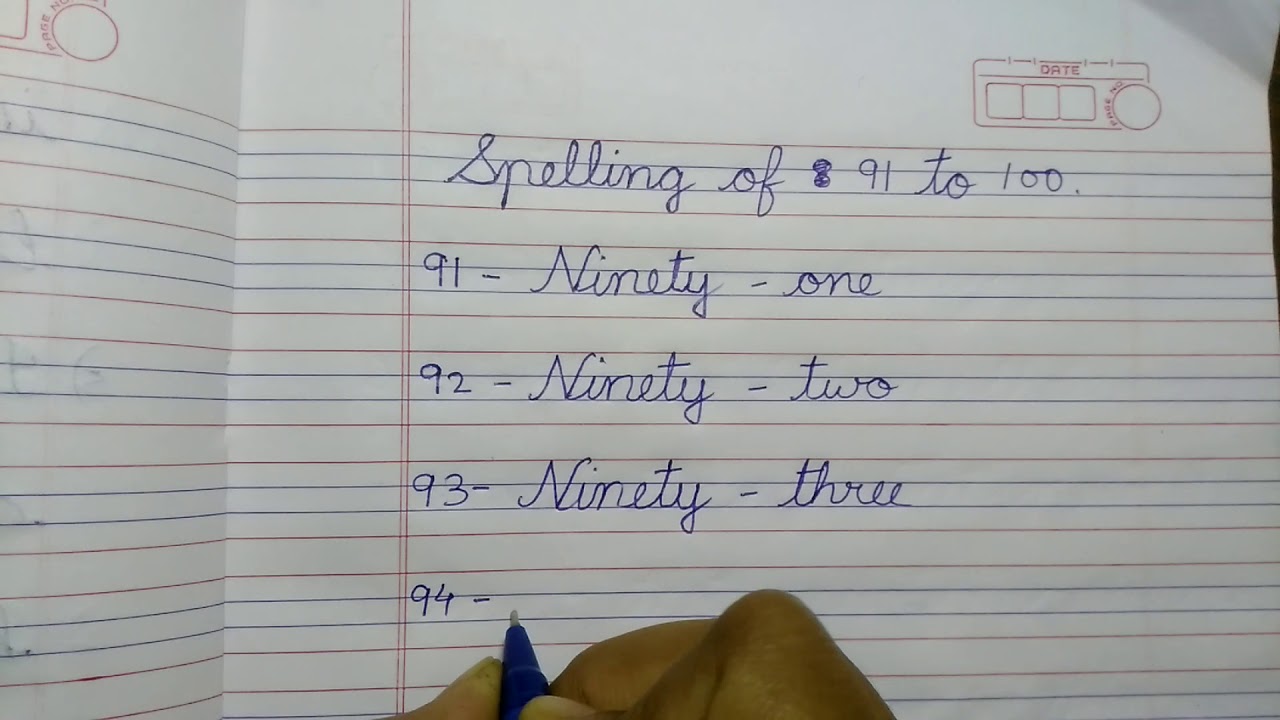 PAGE NO.
DATE
PAGE NO.
Spelling of 91 to 100.
91 - Ninety - one
92 - Ninety - two
93 - Ninety - three
94 -